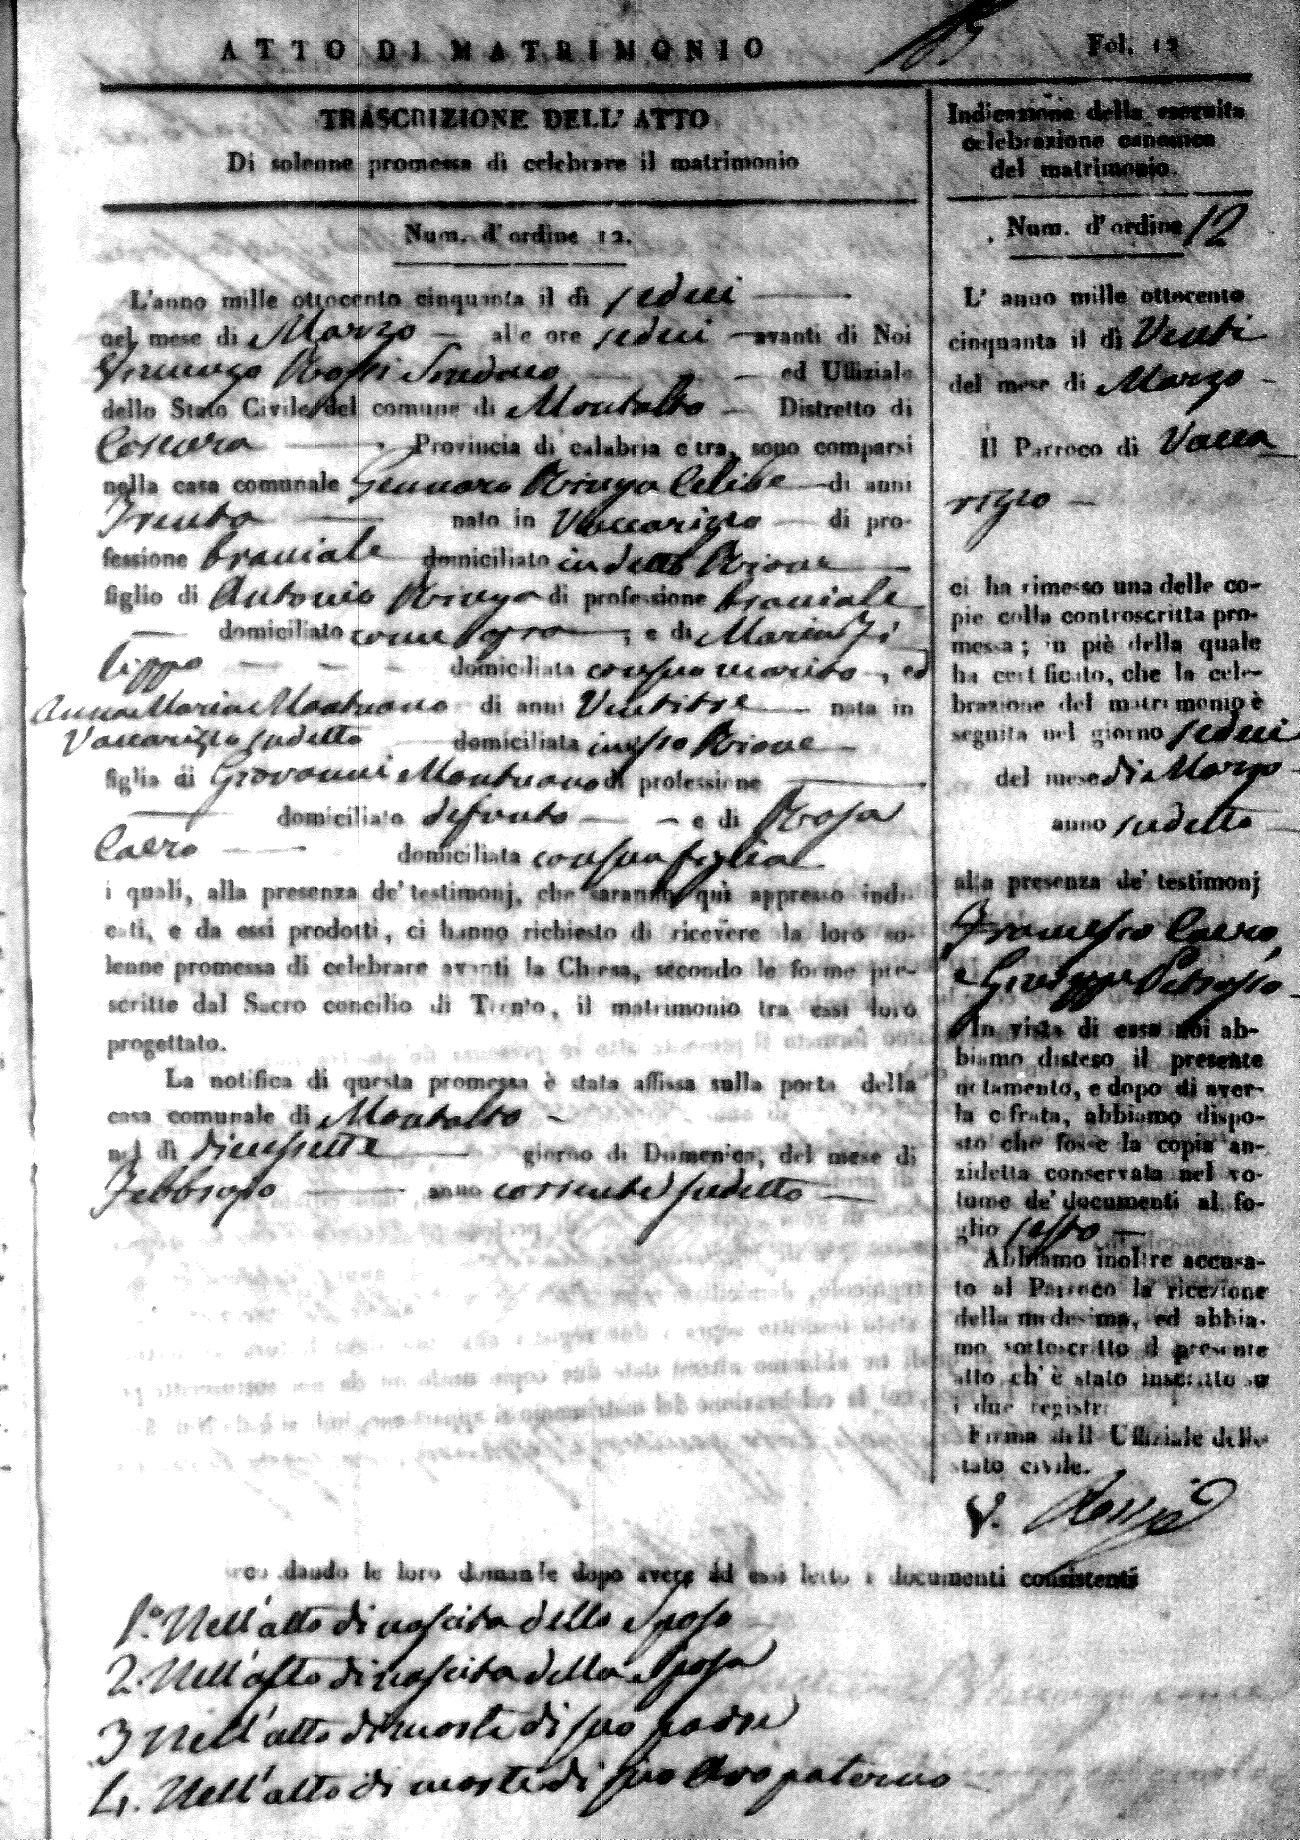 ATTO DI MATRIMONIO
Fol. 12
TRASCRIZIONE DELL' ATTO
Di solenne promessa di celebrare il matrimonio
Num. d'ordine 12.
L'anno mille ottocento cinquanta il dì sedici
nel mese di Marzo alle ore sedici avanti di Noi
Vincenzo Rossi Sindaco ed Uffiziale
dello Stato Civile del comune di Montalto Distretto di
Cosenza Provincia di calabria citra, sono comparsi
nella casa comunale Gennaro Celibe di anni
Trenta nato in Vaccarizzo di pro-
fessione bracciale domiciliato in detto Rione
figlio di Antonio di professione bracciale
domiciliato come sopra ; e di Maria Zi
domiciliata con suo marito, ed
Anna Maria Mantuano di anni Ventitre nata in
Vaccarizzo sudetto domiciliata in esso Rione
figlia di Giovanni Mantuano di professione
domiciliato defunto e di Rosa
Caero domiciliata con sua figlia
i quali, alla presenza de' testimonj, che saranno quì appresso indi-
cati, e da essi prodotti, ci hanno richiesto di ricevere la loro so-
lenne promessa di celebrare avanti la Chiesa, secondo le forme pre-
scritte dal Sacro concilio di Trento, il matrimonio tra essi loro
progettato.
La notifica di questa promessa è stata affissa sulla porta della
casa comunale di Montalto
nel dì diecissette giorno di Domenica, del mese di
Febbrajo anno corrente sudetto
Indicazione della eseguita
celebrazione canonica
del matrimonio.
Num. d'ordine 12
L' anno mille ottocento
cinquanta il dì Venti
del mese di Marzo
Il Parroco di Vacca
rizzo
ci ha rimesso una delle co-
pie colla controscritta pro-
messa; in piè della quale
ha certificato, che la cele-
brazione del matrimonio è
seguita nel giorno sedici
del mese di Marzo
anno sudetto
alla presenza de' testimonj
Francesco Caero,
e Giuseppe Petrasso
In vista di essa noi ab-
biamo disteso il presente
notamento, e dopo di aver-
la cifrata, abbiamo dispo-
sto che fosse la copia an-
zidetta conservata nel vo-
lume de' documenti al fo-
glio sesto
Abbiamo inoltre accusa-
to al Parroco la ricezione
della medesima, ed abbia-
mo sottoscritto il presente
atto ch' è stato inscritto su
i due registri
Firma dell' Uffiziale dello
stato civile.
V. Rossi
dando le loro domande dopo avere ad essi letto i documenti consistenti
1.° Nell'atto di nascita dello Sposo
2. Nell'atto di nascita della Sposa
3 Nell'atto di morte di suo padre
4. Nell'atto di morte di suo Avo paterno